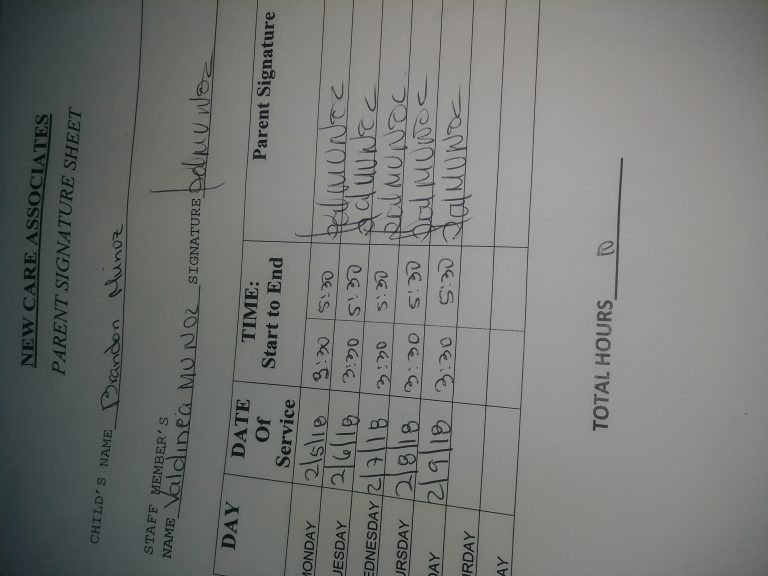 NEW CARE ASSOCIATES
PARENT SIGNATURE SHEET
CHILD'S NAME Brandon Munoz
STAFF MEMBER'S
NAME Valdinéa MUNOZ SIGNATURE ValMUNOZ
DAY DATE Of Service TIME: Start to End Parent Signature
MONDAY 2/5/18 3:30 5:30 ValMUNOZ
UESDAY 2/6/18 3:30 5:30 ValMUNOZ
EDNESDAY 2/7/18 3:30 5:30 ValMUNOZ
URSDAY 2/8/18 3:30 5:30 ValMUNOZ
DAY 2/9/18 3:30 5:30 ValMUNOZ
URDAY
AY
TOTAL HOURS 10